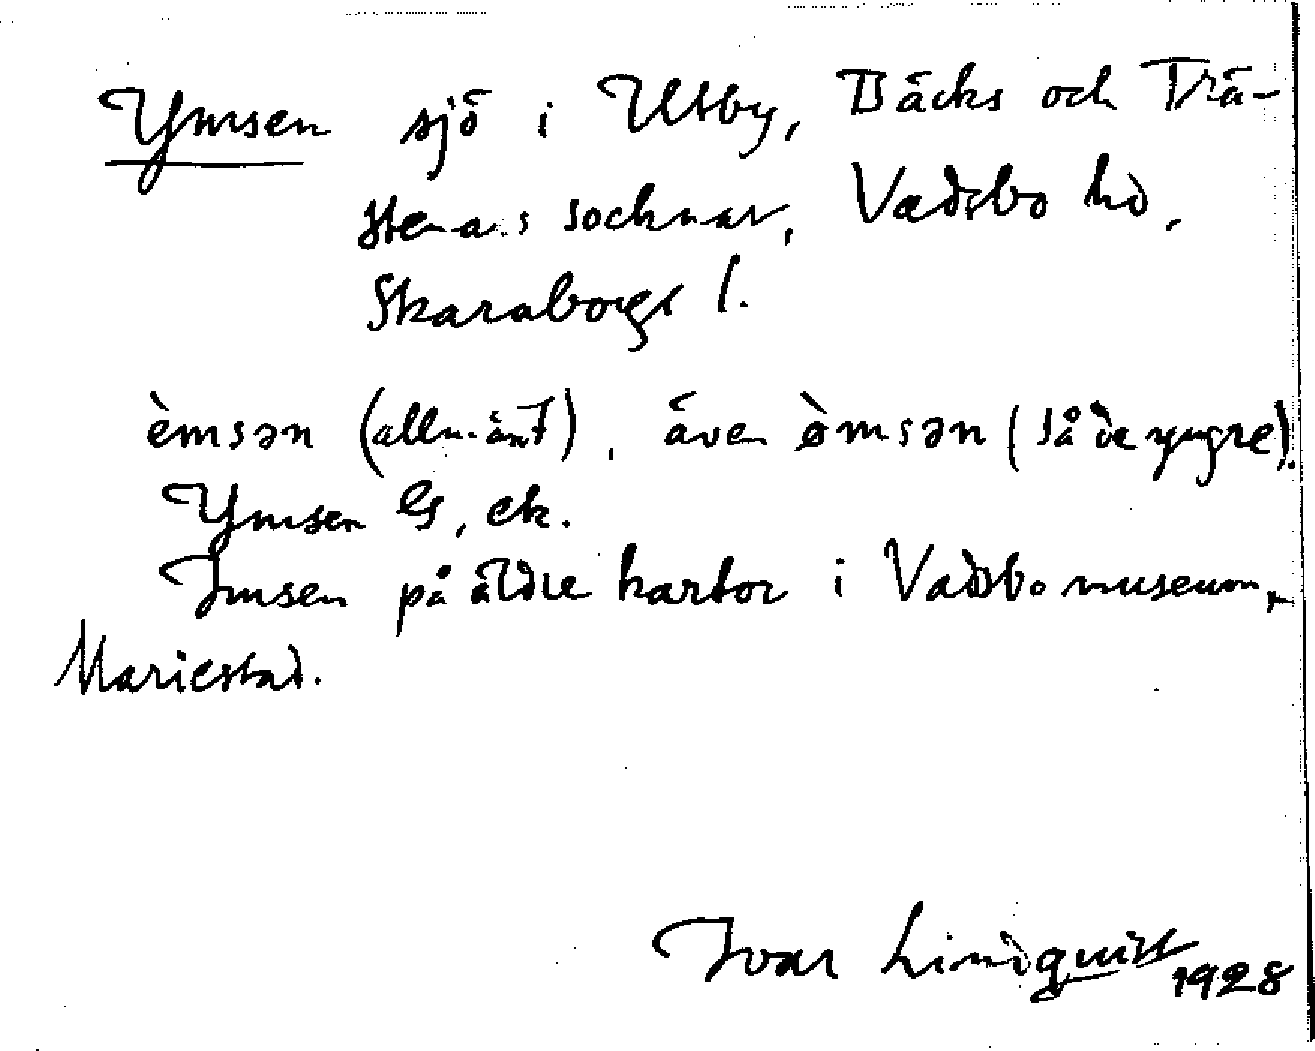 Ymsen sjö i Utby, Bäcks och Trä-
stenas socknar, Vadsbo hd,
Skaraborgs l.
èmsən (allmänt), även ømsən (så de yngre).
Ymsen GS, ek.
Imsen på äldre kartor i Vadsbo museum,
Mariestad.
Ivar Lindquist
1928